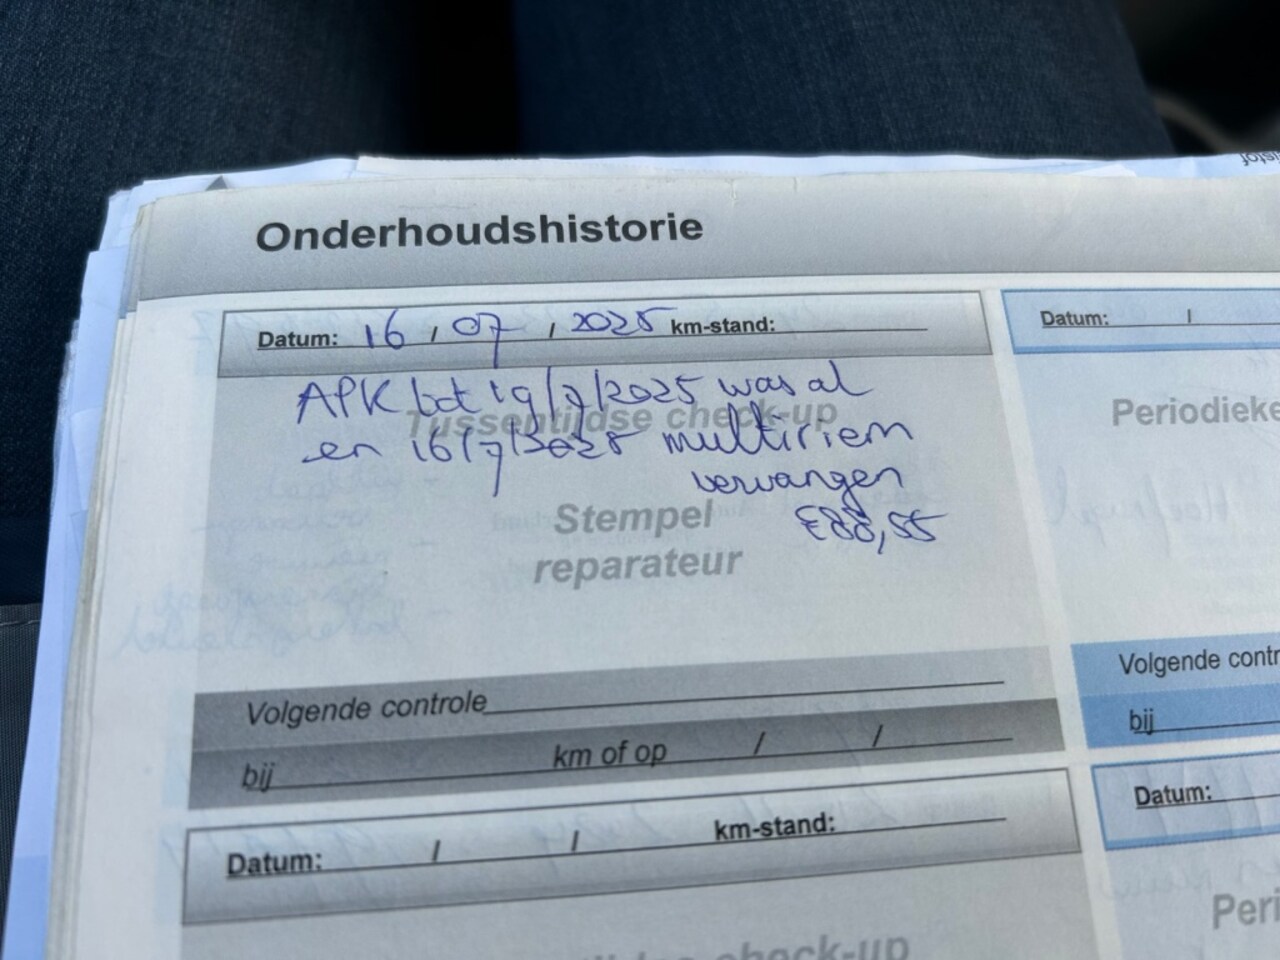 Onderhoudshistorie
Datum: 16 / 07 / 2025 km-stand:
APK tot 19/7/2025 was al
Tussentijdse check-up
en 16/7/2025 multiriem
vervangen
€88,55
Stempel
reparateur
Volgende controle
bij km of op / /
Datum: / / km-stand:
check-up
Datum: /
Periodieke
Volgende contr
bij
Datum:
Peri